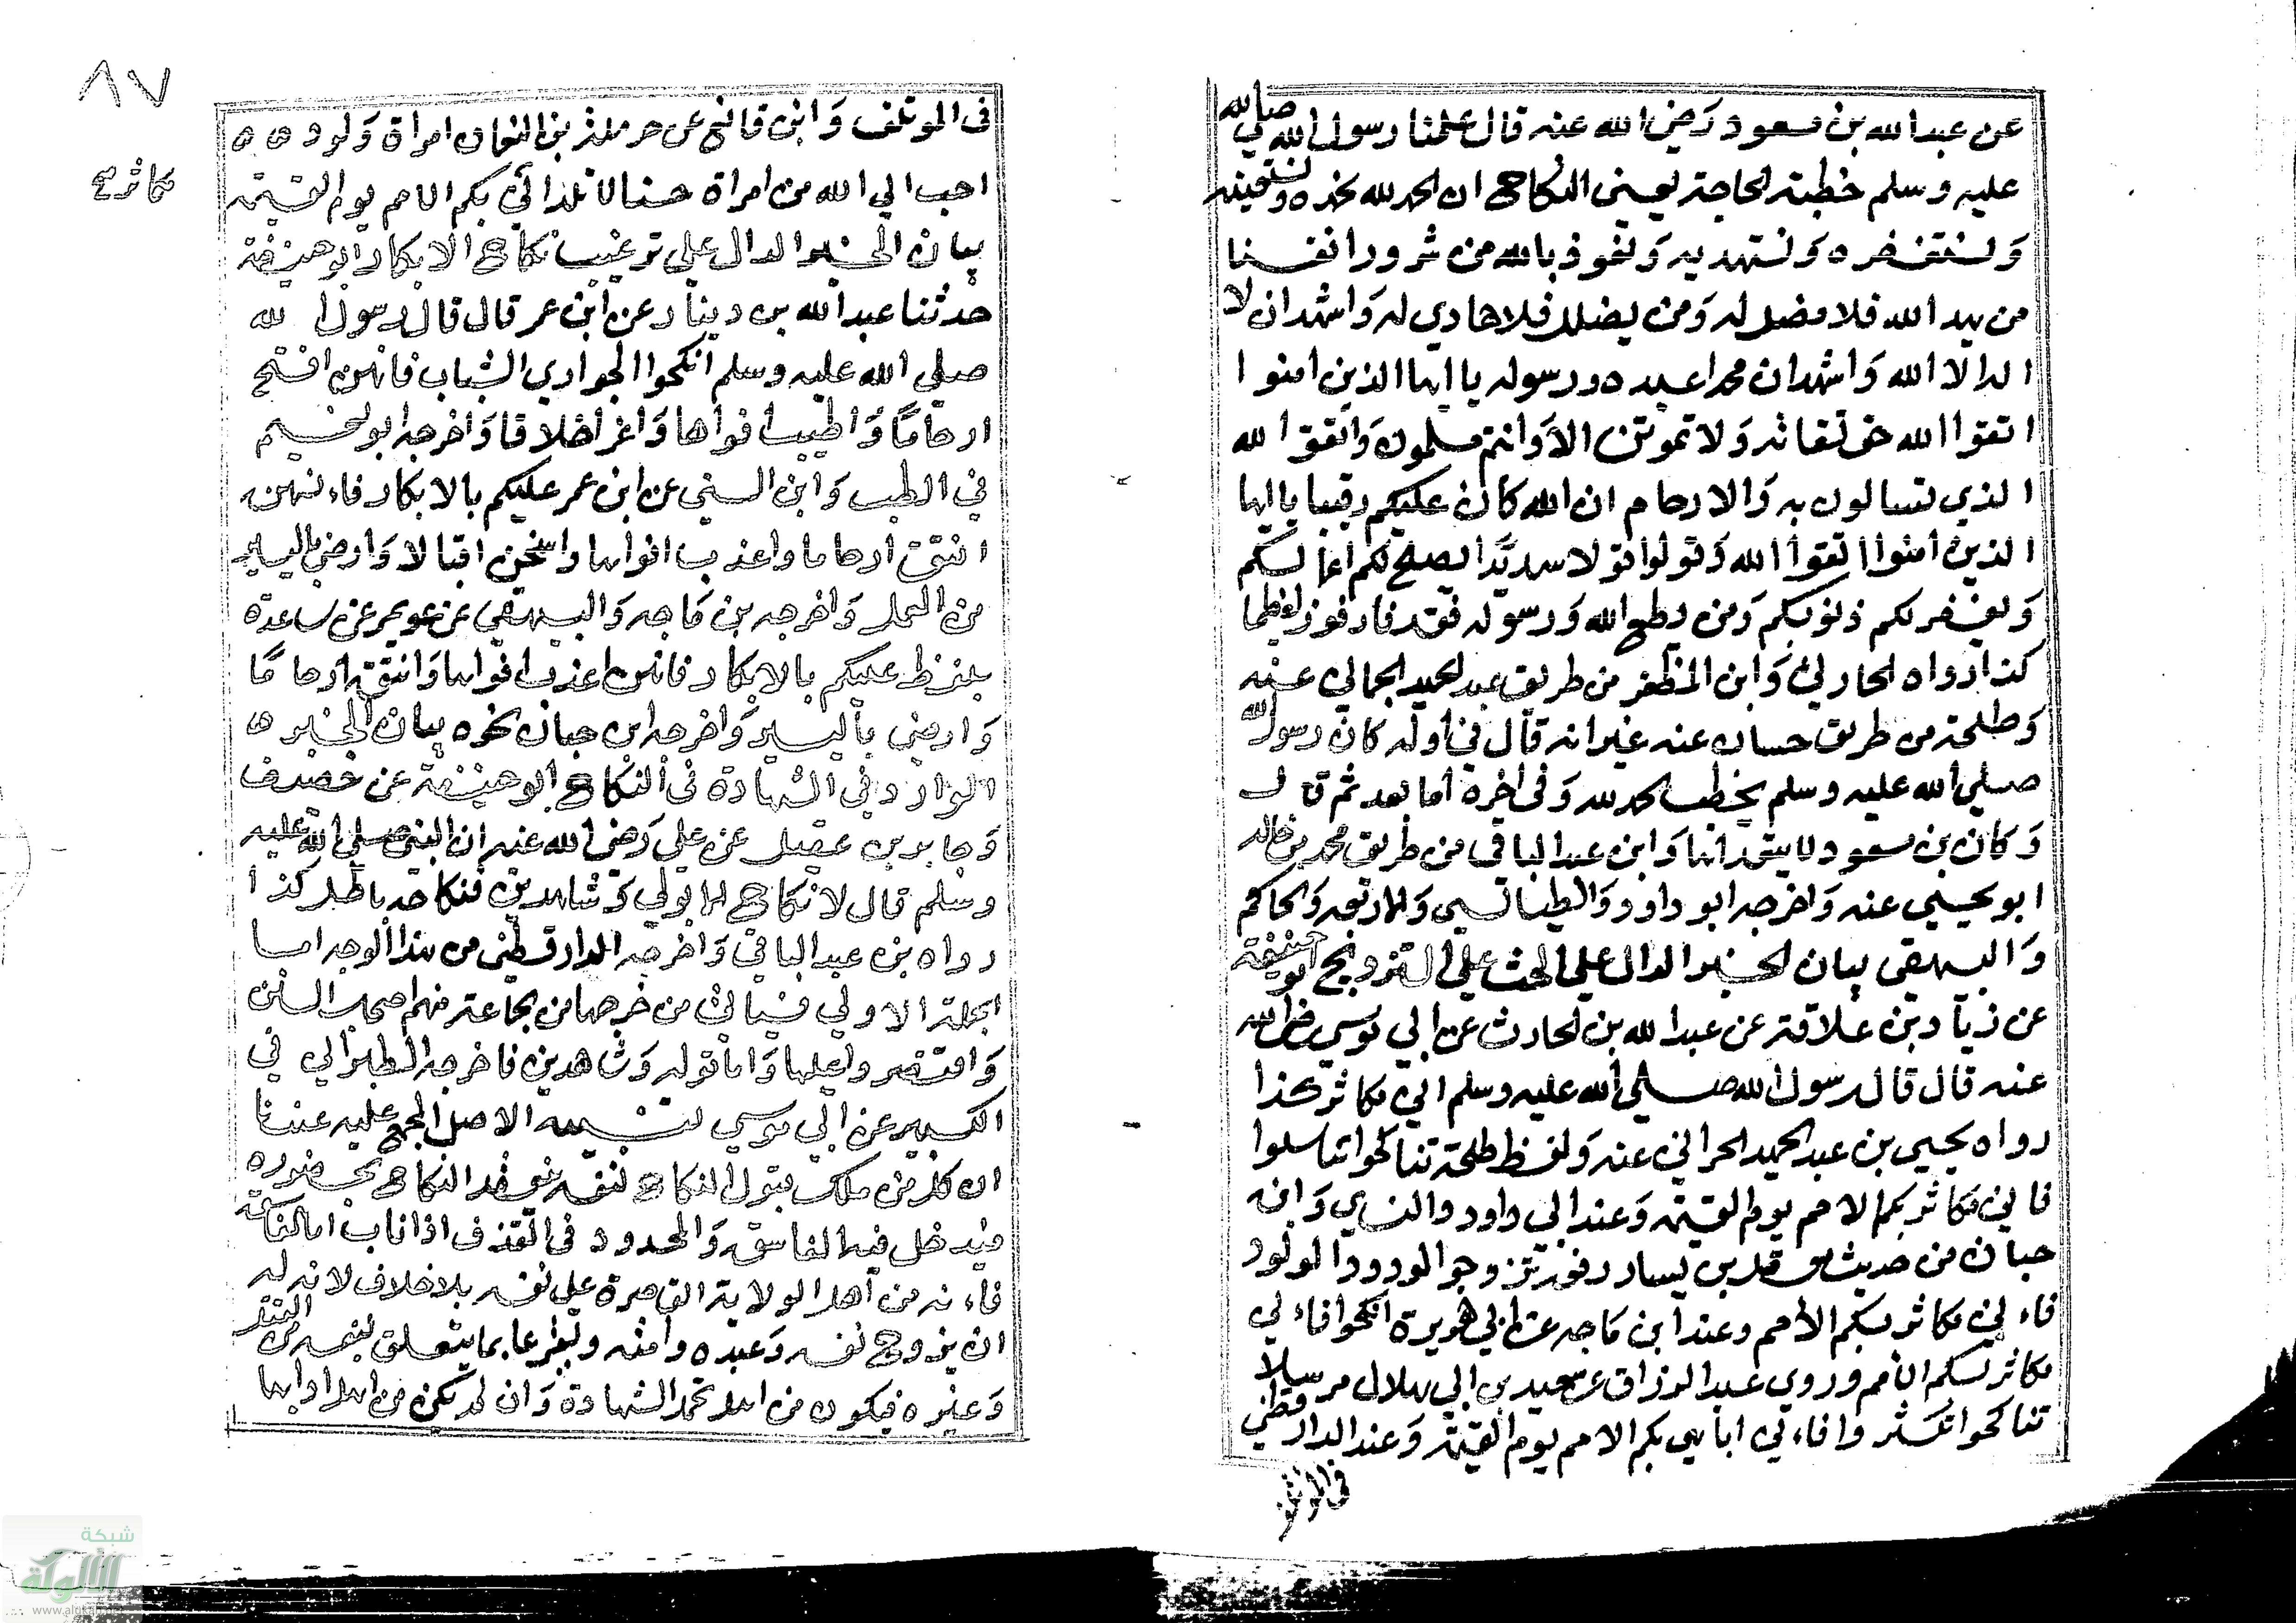 عن عبد الله بن مسعود رَضي الله عنه قال علمنا رسول الله صلي الله
عليه وسلم خطبة الحاجة يعني النكاح ان الحمد لله نحمده ونستعينه
وَنستغفره وَنستهديه وَنعوذ بالله من شرور انفسنا
من يهد الله فلا مضل له وَمن يضلل فلا هادي له وَاشهد ان لا
اله الا الله وَاشهد ان محمدا عبده ورسوله يا ايها الذين امنوا
اتقوا الله حق تقاته وَلا تموتن الا وَانتم مسلمون وَاتقوا الله
الذي تسالون به وَالارحام ان الله كان عليكم رقيبا يا ايها
الذين امنوا اتقوا الله وَقولوا قولا سديدًا يصلح لكم اعمالكم
وَيغفر لكم ذنوبكم وَمن يطع الله وَرسوله فقد فاز فوزا عظيما
كذا رواه الحارثي وَابن المظفر من طريق عبد الحميد الحمالي عنه
وَطلحة من طريق حسان عنه غير انه قال في اوله كان رسول الله
صلي الله عليه وسلم يخطب الحمد لله وَفي اخره اما بعد ثم قال
وَكان بن مسعود لا يتقدانها وَابن عبد الباقي من طريق محمد بن خالد
ابو يحيي عنه وَاخرجه ابو داود وَالطيالسي وَالاربعة وَالحاكم
وَالبيهقي بيان الخبر الدال علي الحث علي التزويج ابو حنيفة
عن زياد بن علاقة عن عبد الله بن الحارث عن ابي موسي رضي الله
عنه قال قال رسول الله صلي الله عليه وسلم اني مكاثر كذا
رواه يحيي بن عبد الحميد الحراني عنه وَلفظ طلحة تناكحوا تناسلوا
فاني مكاثر بكم الامم يوم القيمة وَعند ابي داود والنساي وَابن
حبان من حديث معقل بن يسار رفعه تزوجوا الودود الولود
فاءني مكاثر بكم الامم وعند ابن مَاجه عن ابي هريرة انكحوا فاءني
مكاثر بكم الامم وروي عبد الرزاق عن سعيد بن ابي هلال مرسلا
تناكحوا تكثروا فاءني اباهي بكم الامم يوم القيمة وَعند الدارقطني
في الموتلف
٨٧
في الموتلف وَابن قانع عن حرملة بن النعمان امراة وَلود
احب الي الله من امراة حسنا لا تلد اني بكم الامم يوم القيمة
مكاثر
بيان الخبر الدال علي ترغيب نكاح الابكار ابو حنيفة
حدثنا عبد الله بن دينار عن ابن عمر قال قال رسول الله
صلي الله عليه وسلم انكحوا الجواري الشباب فانهن افتح
ارحامًا وَاطيب افواها وَاغر اخلاقا وَاخرجه ابو نعيم
في الطب وَابن السني عن ابن عمر عليكم بالابكار فاءنهن
انتق ارحاما واعذب افواها واسخن اقبالا وَارضي باليسير
من العمل وَاخرجه بن مَاجه وَالبيهقي عن عويمر عن ساعدة
بلفظ عليكم بالابكار فانهن اعذب افواها وَانتق ارحامًا
وَارضي باليسير وَاخرجه ابن حبان نحوه بيان الخبر
الوارد في الشهادة في النكاح ابو حنيفة عن خصيف
وَجابر بن عقيل عن علي رَضي الله عنه ان النبي صلي الله عليه
وسلم قال لا نكاح الا بولي وَشاهدين فنكاحه باطل كذا
رواه بن عبد الباقي وَاخرجه الدارقطني من هذا الوجه اما
الجملة الاولي فسياتي من خرجها من جماعة منهم اصحاب السنن
وَاقتصر وعليها وَاما قوله وَشاهدين فاخرجه الطبراني في
الكبير عن ابي موسي تنبيه الاصل المجمع عليه عندنا
ان كل من ملك قبول النكاح لنفسه ينعقد النكاح بحضوره
فيدخل فيه الفاسق وَالمحدود في القذف اذا تاب اما الفاسق
فاءنه من اهل الولاية القاصرة علي نفسه بلا خلاف لانه له
ان يزوج نفسه وَعبده وامته ويقر عا بما يتعلق بنفسه من القتل
وَغيره فيكون من اهل تحمل الشهادة وَان لم يكن من اهل ادايها